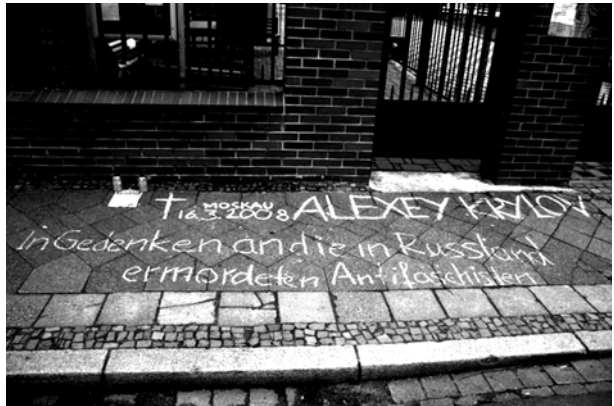 † MOSKAU
16.3.2008 ALEXEY KRYLOV
In Gedenken an die in Russland
ermordeten Antifaschisten